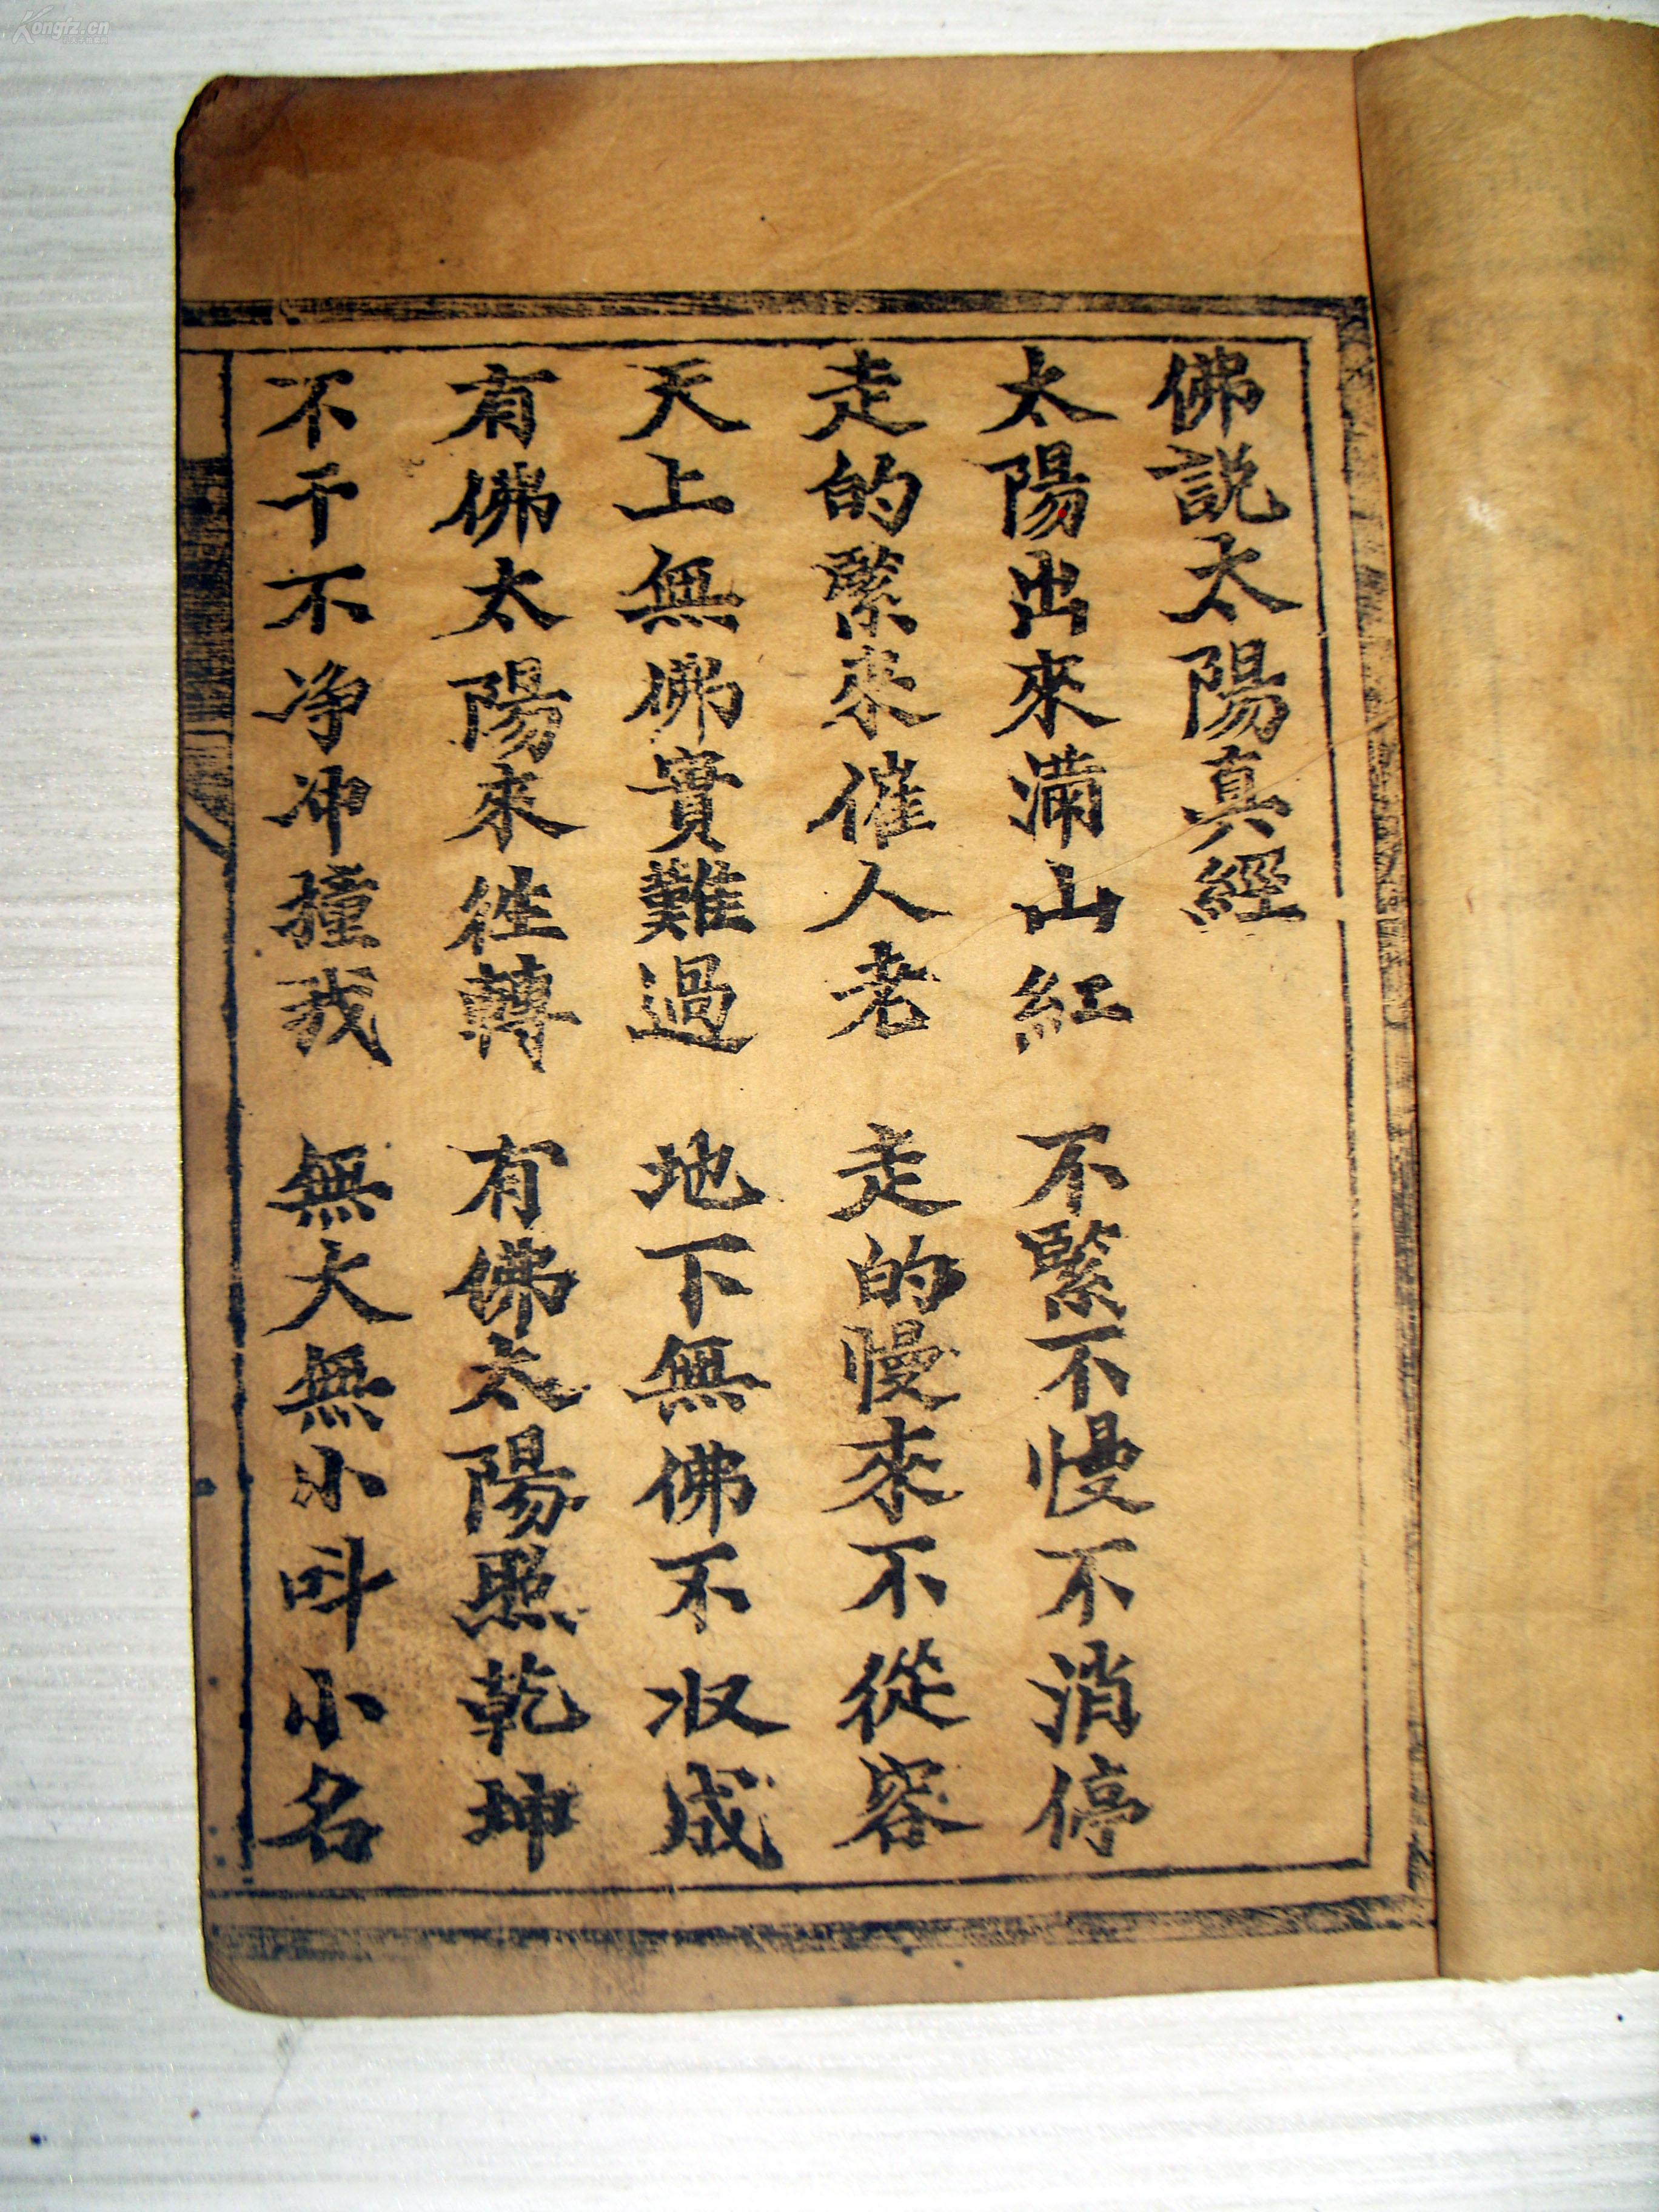 佛説太陽真經
太陽出來滿山紅 不緊不慢不消停
走的緊來催人老 走的慢來不從容
天上無佛實難過 地下無佛不収成
有佛太陽來徃轉 有佛太陽照乾坤
不干不净冲撞我 無大無小呌小名
Kongfz.cn